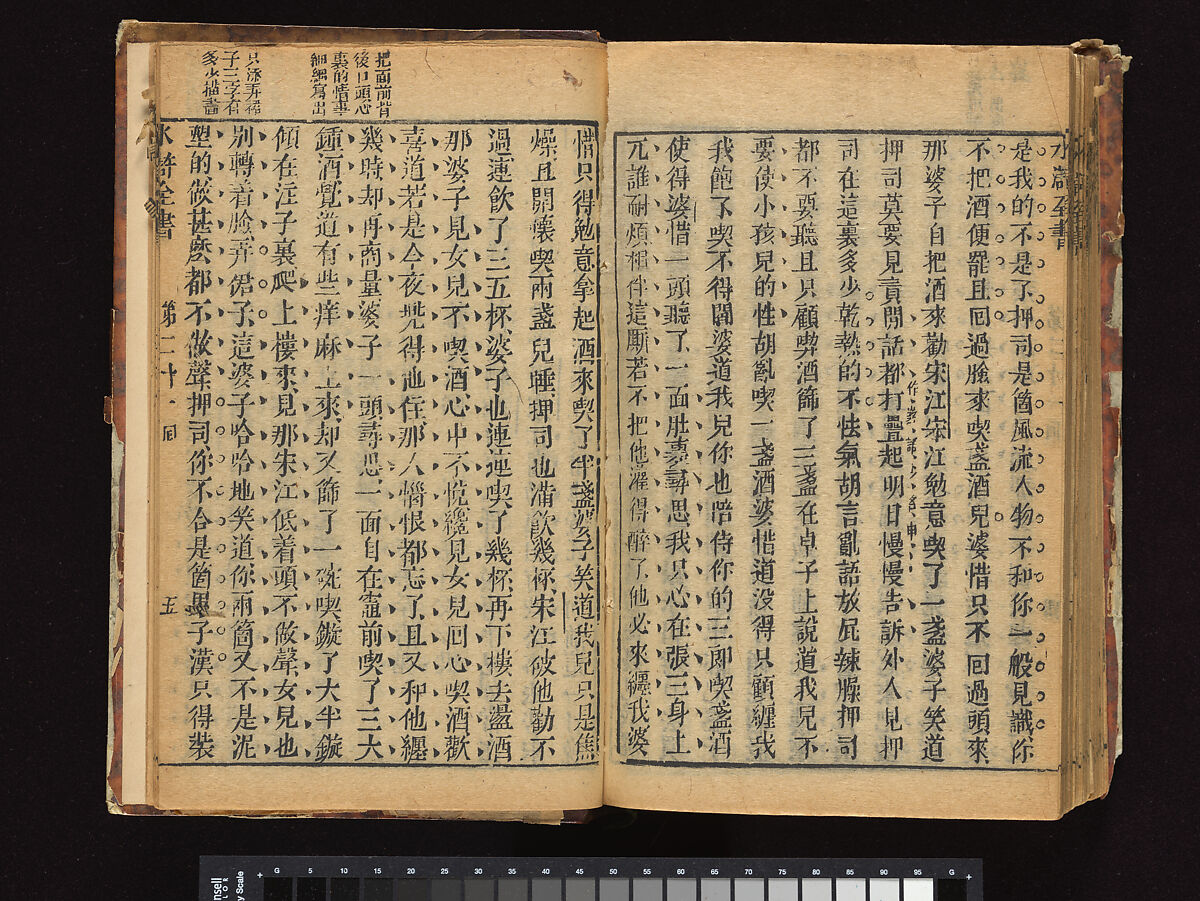 水滸全書
是我的不是了押司是箇風流人物不和你一般見識你
不把酒便罷且回過臉來喫盞酒兒婆惜只不回過頭來
那婆子自把酒來勸宋江宋江勉意喫了一盞婆子笑道
押司莫要見責閒話都打疊起明日慢慢告訴外人見押
司在這裏多少乾熱的不怯氣胡言亂語放屁辣臊押司
都不要聽且只顧喫酒篩了三盞在卓子上說道我兒不
要使小孩兒的性胡亂喫一盞酒婆惜道没得只顧纒我
我飽了喫不得閻婆道我兒你也陪侍你的三郎喫盞酒
使得婆惜一頭聽了一面肚裏尋思我只心在張三身上
兀誰耐煩相伴這厮若不把他灌得醉了他必來纒我婆
惜只得勉意拿起酒來喫了半盞婆子笑道我兒只是焦
燥且開懷喫兩盞兒睡押司也滿飲幾杯宋江被他勸不
過連飲了三五杯婆子也連連喫了幾杯再下樓去盪酒
那婆子見女兒不喫酒心中不悅纔見女兒回心喫酒歡
喜道若是今夜兜得他住那人惱恨都忘了且又和他纒
幾時却再商量婆子一頭尋思一面自在竈前喫了三大
鍾酒覺道有些痒麻上來却又篩了一碗喫鏇了大半鏇
傾在注子裏爬上樓來見那宋江低着頭不做聲女兒也
別轉着臉弄裙子這婆子哈哈地笑道你兩箇又不是泥
塑的做甚麽都不做聲押司你不合是箇男子漢只得裝
把面前背
後口頭心
裏的情事
細細寫出
只添弄裙
子三字有
多少描畫
水滸全書
第二十一回
五
G 5 10 15 20 25 30 35 40 45 50 55 60 65 70 75 80 85 90 95 G